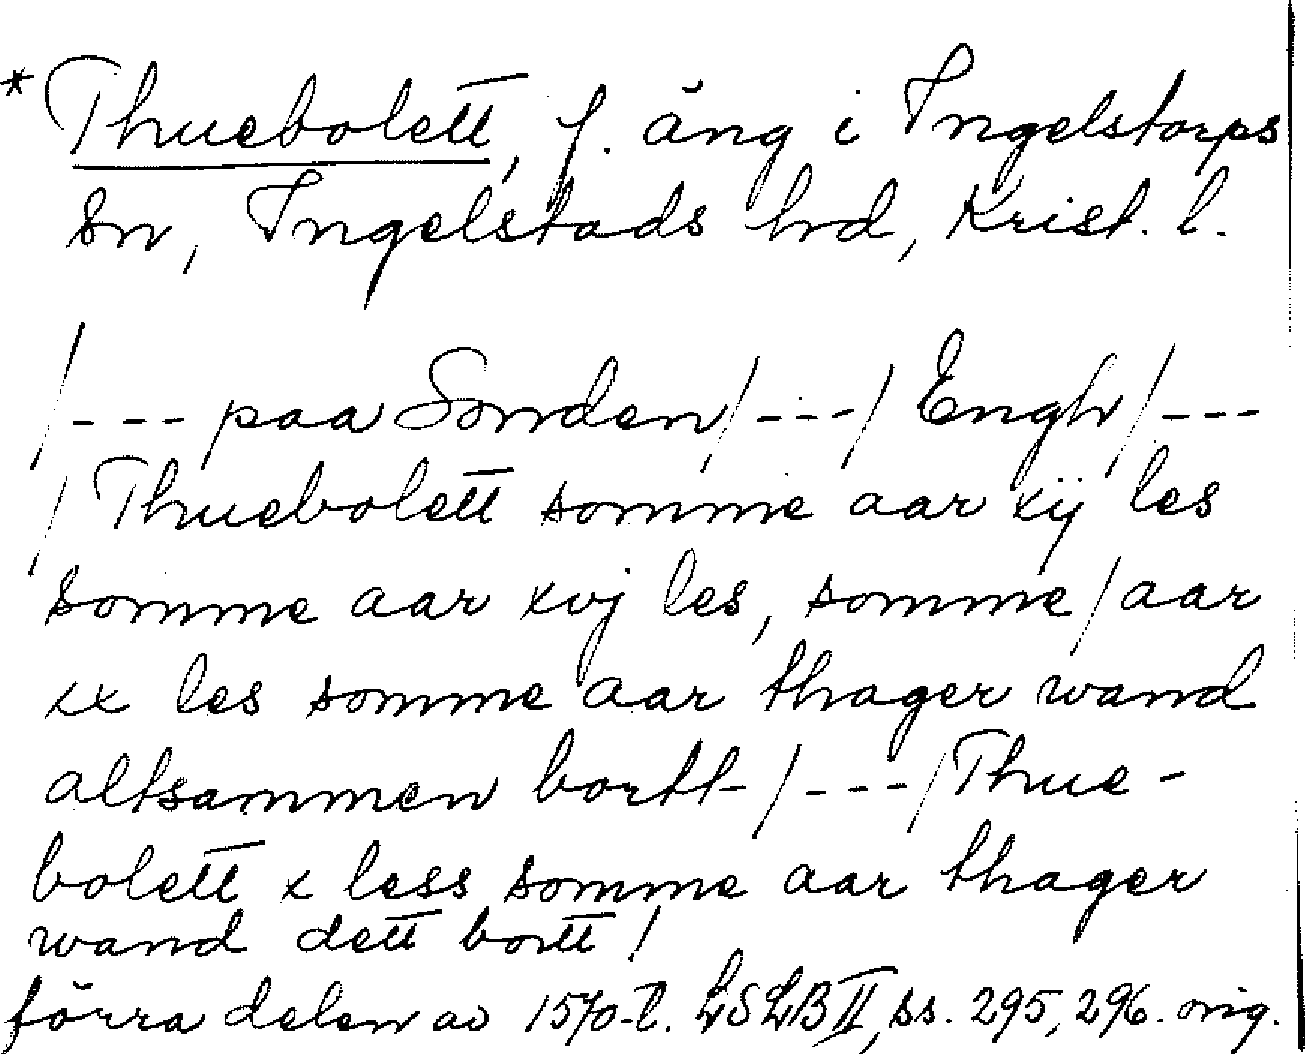 * Thuebolett, f. äng i Ingelstorps
sn, Ingelstads hd, Krist. l.
/--- paa Sonden/---/ Engh/---
/Thuebolett somme aar xij les
somme aar xvj les, somme/aar
xx les somme aar thager wand
altsammen bortt-/---/Thue-
bolett x less somme aar thager
wand dett bortt/
förra delen av 1570-t. LSLB II, ss. 295, 296. orig.